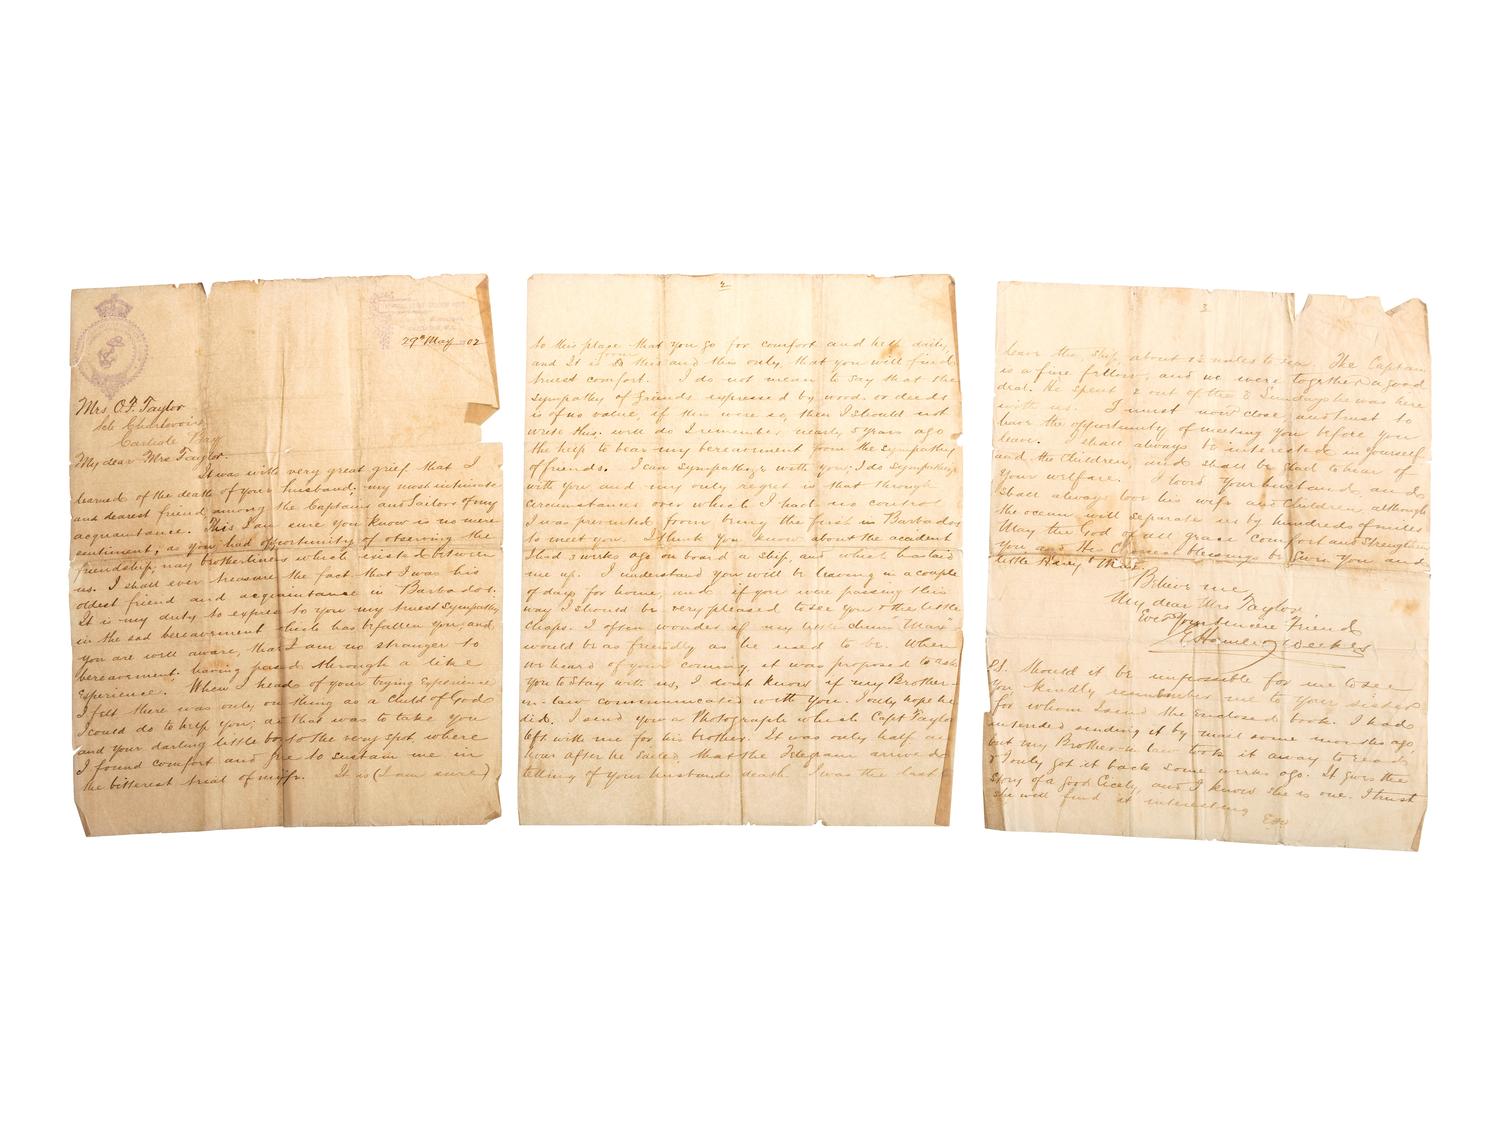 29th May 02
Mrs. O. F. Taylor
Carlisle Bay
My dear Mrs Taylor.
It was with very great grief that I
learned of the death of your husband; my most intimate
and dearest friend among the Captains and Sailors of my
acquaintance. This I am sure you know is no mere
sentiment; as you had opportunity of observing the
friendship, nay brotherliness which existed between
us. I shall ever treasure the fact that I was his
oldest friend and acquaintance in Barbados.
It is my duty to express to you my truest sympathy
in the sad bereavement which has befallen you, and
you are well aware, that I am no stranger to
bereavement having passed through a like
Experience. When I heard of your trying Experience
I felt there was only one thing as a Child of God
I could do to help you; as that was to take you
and your darling little boy to the very spot where
I found comfort and to sustain me in
the bitterest trial of my It is (I am sure)
2
to this place that you go for comfort and help daily,
and It is from this and this only, that you will find
truest comfort. I do not mean to say that the
sympathy of friends expressed by word or deeds
is of no value, if this were so, then I should not
write this. well do I remember nearly 5 years ago
the help to bear my bereavement from the sympathy
of friends. I can sympathize with you; I do sympathize
with you and my only regret is that through
circumstances over which I had no control
I was prevented from being the first in Barbados
to meet you. I think you know about the accident
I had 3 weeks ago on board a ship, and which has laid
me up. I understand you will be leaving in a couple
of days for home, and if you were passing this
way I should be very pleased to see you & the little
chaps. I often wonder if my little chum "Max"
would be as friendly as he used to be. When
we heard of your coming, it was proposed to ask
you to stay with us, I dont know if my Brother-
in-law communicated with you. I only hope he
did. I send you a Photograph which Capt Taylor
left with me for his brother. It was only half an
hour after he sailed, that the Telegram arrived
telling of your husbands death. I was the last to
3
leave the ship, about 1½ miles to sea The Captain
is a fine fellow, and we were together a good
deal. He spent 2 out of the 3 Sundays he was here
with us. I must now close, and trust to
have the opportunity of meeting you before you
leave. I shall always be interested in yourself
and the Children, and shall be glad to hear of
your welfare. I loved your husband, and I
shall always love his wife and Children, although
the ocean will separate us by hundreds of miles
May the God of all grace comfort and strengthen
you and His blessings be upon you and
little Harry & Max
Believe me
My dear Mrs Taylor
Ever Your sincere Friend
E Hamley Weekes
P.S. Should it be impossible for me to see
you kindly remember me to your sister
for whom I send the enclosed book. I had
intended sending it by mail some months ago,
but my Brother-in-law took it away to read
& I only got it back some weeks ago. It gives the
story of a good Cicely, and I know she is one. I trust
she will find it interesting
EHW